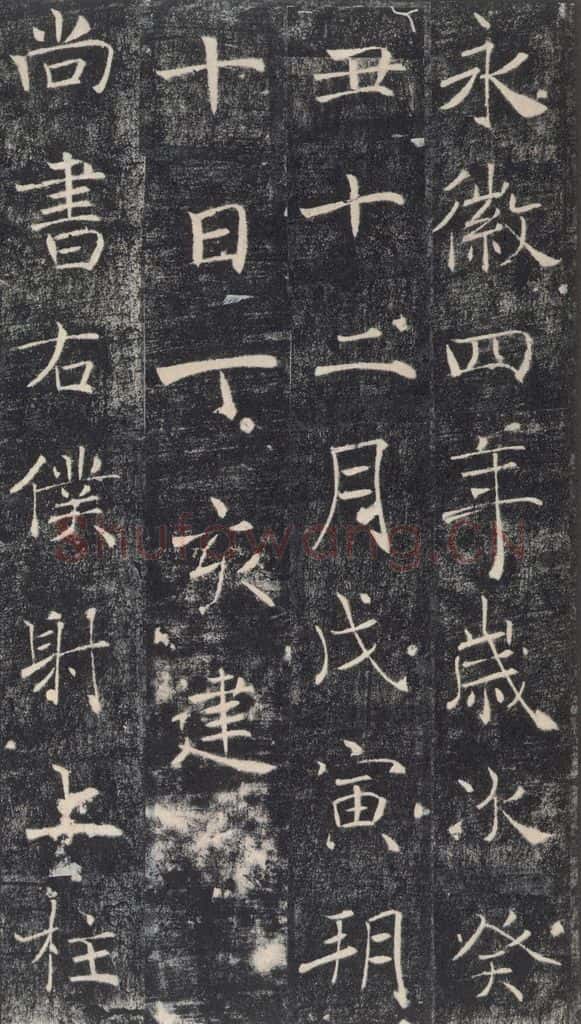 永徽四年歲次癸
丑十二月戊寅朔
十日丁亥建
尚書右僕射上柱
shufawang.CN